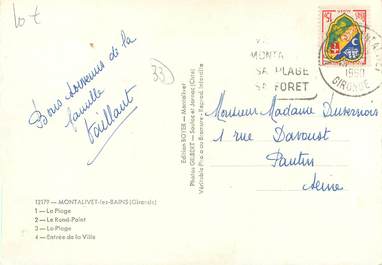 10 €
33
15F
MONTA
SA PLAGE
SA FORET
1960
GIRONDE
Bons souvenirs de la
famille
Vaillant
Monsieur Madame Duvernois
1 rue Davoust
Pantin
Seine
Edition BOYER - Montalivet
Photos GILBERT - Soulac et Jarnac (Chte)
Véritable Photo au Bromure - Reprod. Interdite
12179 - MONTALIVET-les-BAINS (Gironde)
1 - La Plage
2 - Le Rond-Point
3 - La Plage
4 - Entrée de la Ville